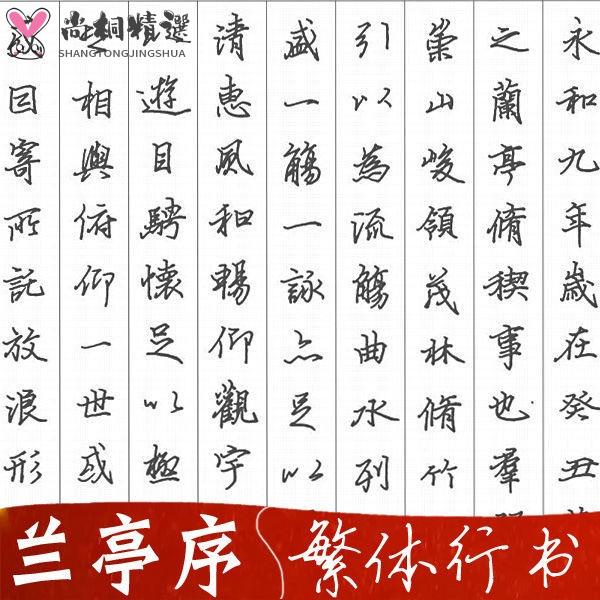 尚桐精選
SHANGTONGJINGSHUA
永和九年歲在癸丑
之蘭亭脩稧事也羣
崇山峻領茂林脩竹
引以為流觴曲水列
盛一觴一詠亦足以
清惠風和暢仰觀宇
遊目騁懷足以極
相與俯仰一世或
因寄所託放浪形
兰亭序
繁体行书